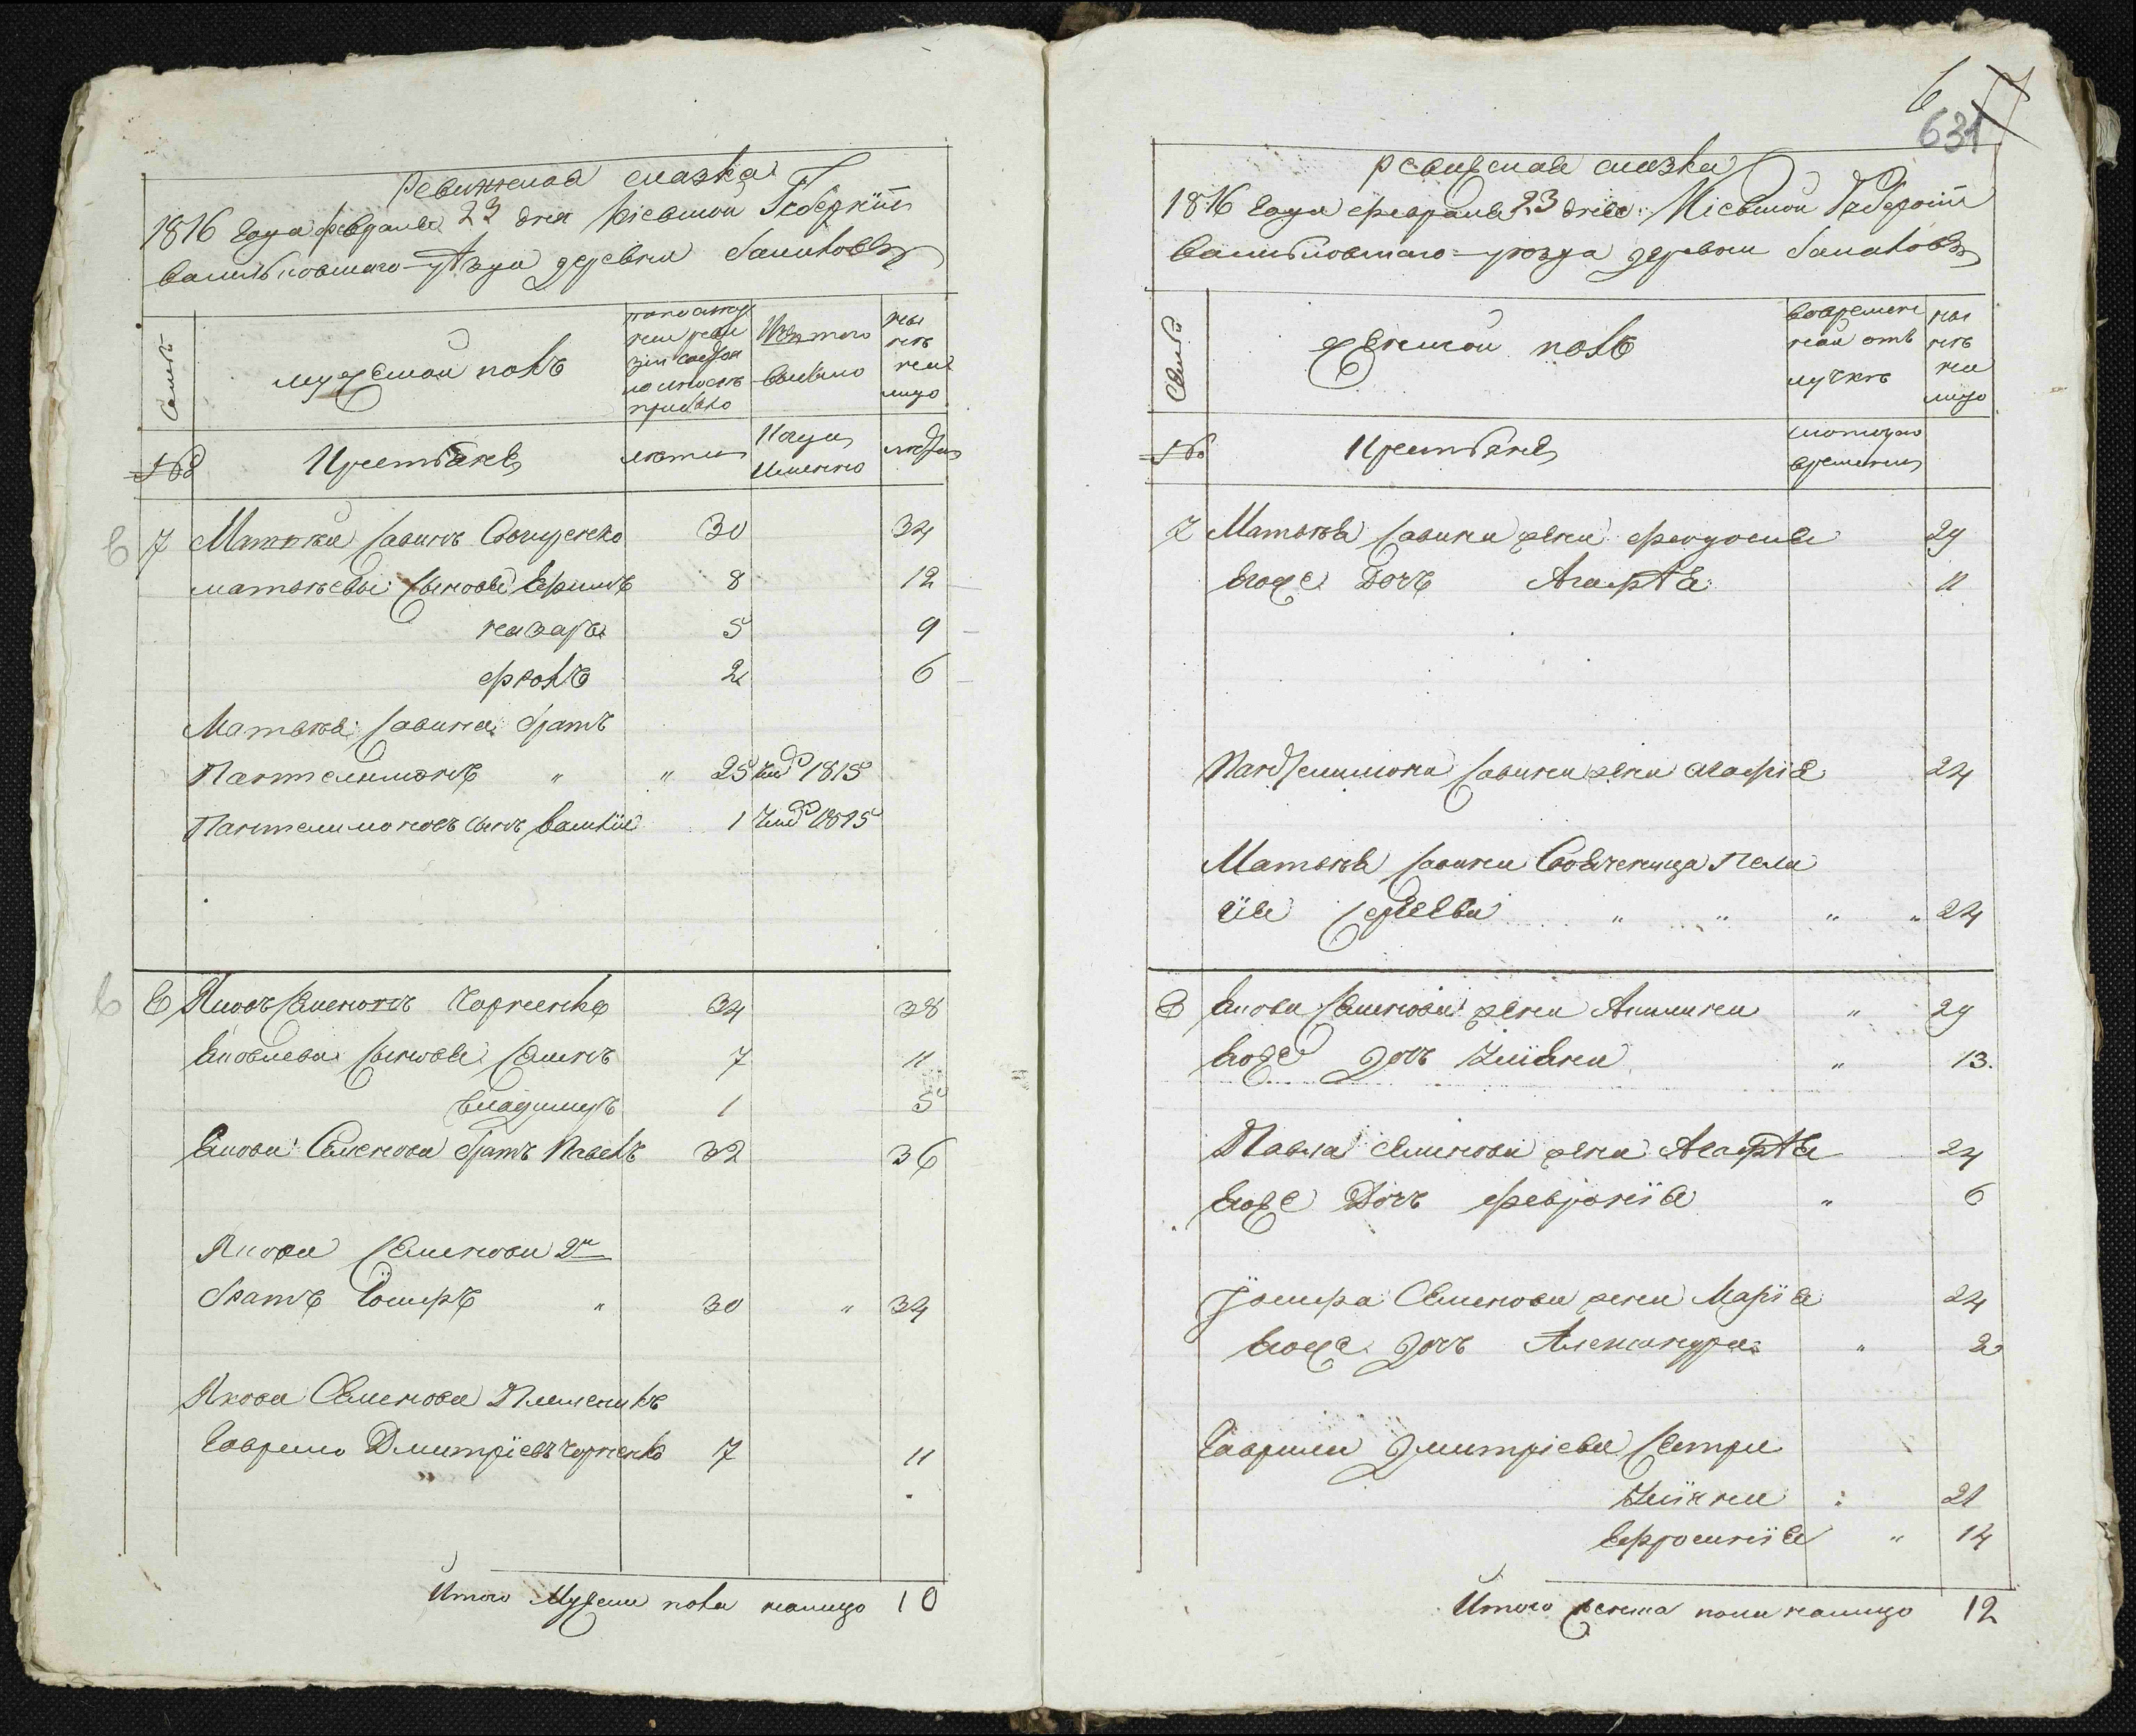 Ревижская сказка
1816 Года февраля 23 дня Кіевской Губернїи
Василковскаго уѣзда деревни Салиховъ
Семьи
мужеской полъ
по последней ревизіи состояло и после прибыло
Изъ того выбыло
ныне на лицо
№
Крестьяне
лета
Когда Именно
лѣта
7 Маткѣй Савинъ 30 34
маткѣевы Сыновья Ефимъ 8 12
назаръ 5 9
фролъ 2 6
Маткѣя Савина братъ
Пантелимонъ " " 25 1815
Пантелимоновъ сынъ Василїй 1 1815
8 Яковъ Семеновъ Чорненко 34 38
Яковлевы Сыновья Семенъ 7 11
Владимиръ 1 5
Якова Семенова братъ Павелъ 32 36
Якова Семенова 2й
братъ Іосифъ " 30 " 34
Якова Семенова Племеникъ
Гаврило Дмитрїевъ Чорненко 7 11
Итого Мужеска пола налицо 10
6 7
631
ревижская сказка
1816 Года февраля 23 дня Кіевской Губернїи
Василковскаго уѣзда деревни Салиховъ
Семьи
женской полъ
во временной отлучкѣ
ныне на лицо
№
Крестьяне
с котораго времени
7 Маткѣя Савина жена феодосия 29
Его же Дочь Агафія 11
Пантелимона Савина жена агафія 24
Маткѣя Савина Пела
гїя " " " " 24
8 Якова Семенова жена Акилина " 29
Его же дочь Улїяна " 13.
Павла Семенова жена Агафія 24
Его же Дочь февронїя " 6
Іосифа Семенова жена Марїя 24
Его же дочь Александра " 2
Гаврила Дмитрїева Сестри
Улїяна : 21
Ефросинїя " 14
Итого женска пола налицо 12